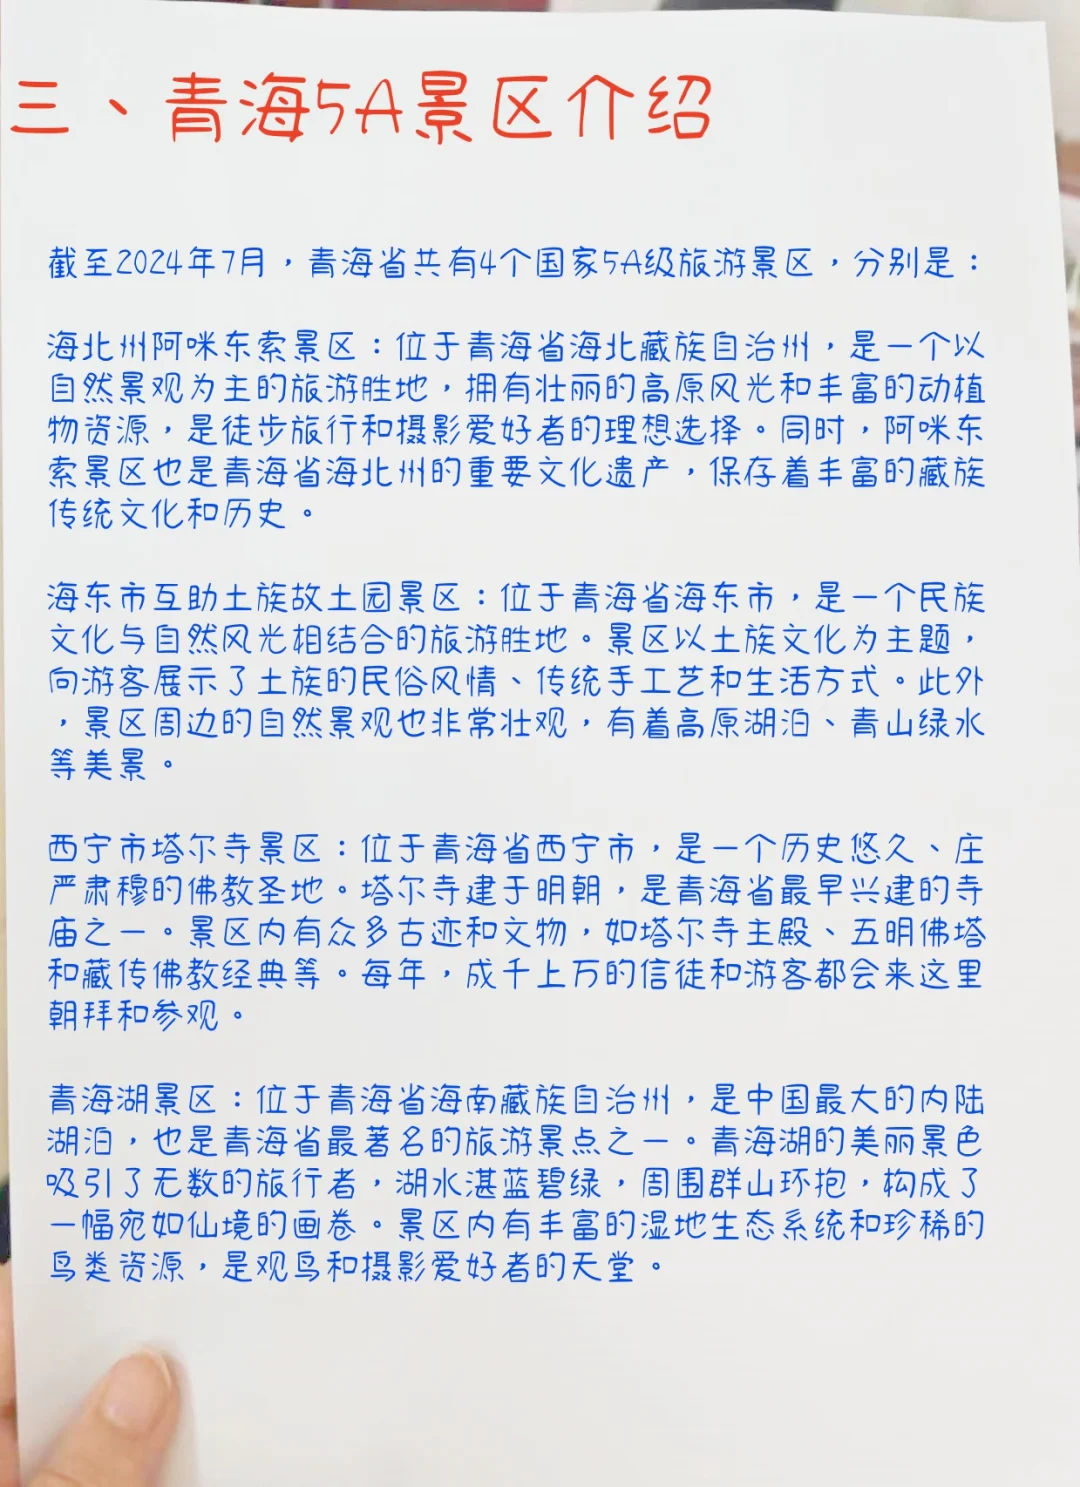 三、青海5A景区介绍
截至2024年7月，青海省共有4个国家5A级旅游景区，分别是：
海北州阿咪东索景区：位于青海省海北藏族自治州，是一个以
自然景观为主的旅游胜地，拥有壮丽的高原风光和丰富的动植
物资源，是徒步旅行和摄影爱好者的理想选择。同时，阿咪东
索景区也是青海省海北州的重要文化遗产，保存着丰富的藏族
传统文化和历史。
海东市互助土族故土园景区：位于青海省海东市，是一个民族
文化与自然风光相结合的旅游胜地。景区以土族文化为主题，
向游客展示了土族的民俗风情、传统手工艺和生活方式。此外
，景区周边的自然景观也非常壮观，有着高原湖泊、青山绿水
等美景。
西宁市塔尔寺景区：位于青海省西宁市，是一个历史悠久、庄
严肃穆的佛教圣地。塔尔寺建于明朝，是青海省最早兴建的寺
庙之一。景区内有众多古迹和文物，如塔尔寺主殿、五明佛塔
和藏传佛教经典等。每年，成千上万的信徒和游客都会来这里
朝拜和参观。
青海湖景区：位于青海省海南藏族自治州，是中国最大的内陆
湖泊，也是青海省最著名的旅游景点之一。青海湖的美丽景色
吸引了无数的旅行者，湖水湛蓝碧绿，周围群山环抱，构成了
一幅宛如仙境的画卷。景区内有丰富的湿地生态系统和珍稀的
鸟类资源，是观鸟和摄影爱好者的天堂。